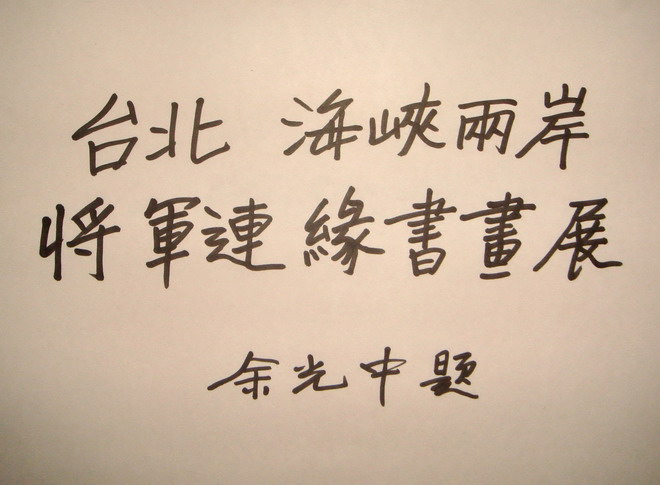 台北 海峽兩岸
將軍連緣書畫展
余光中題